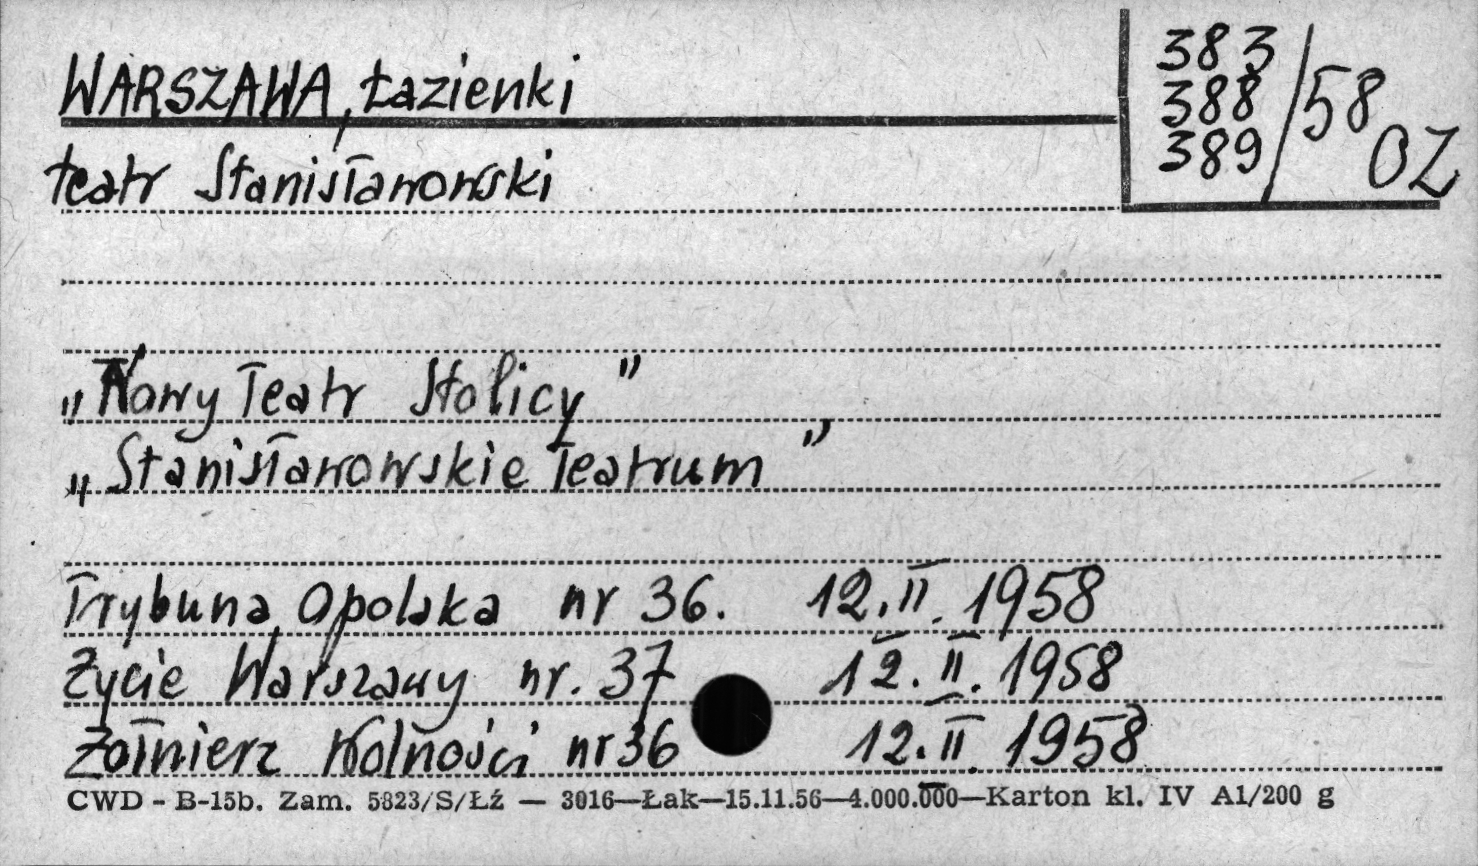 WARSZAWA, Łazienki
383
388
389
/58
OZ
teatr Stanisławowski
„Nowy Teatr Stolicy”
„Stanisławowskie Teatrum”
Trybuna Opolska nr 36. 12.II.1958
Życie Warszawy nr. 37 12.II.1958
Żołnierz Wolności nr 36 12.II.1958
CWD - B-15b. Zam. 5823/S/Łź — 3016—Łak—15.11.56—4.000.000—Karton kl. IV A1/200 g